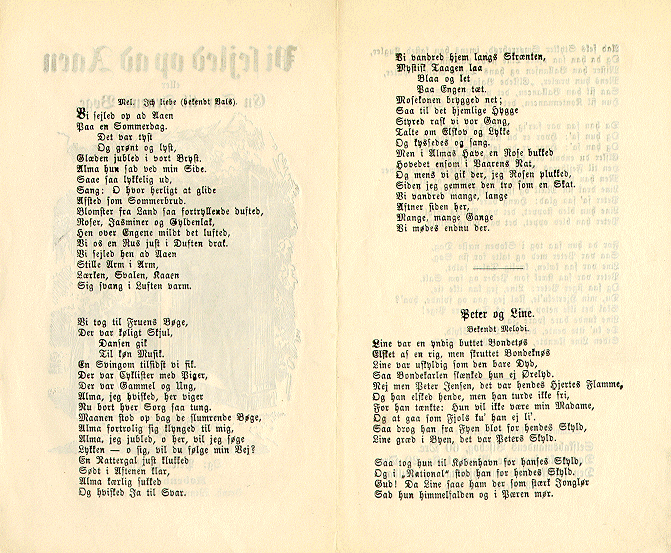 Mel. Ich liebe (bekendt Vals).
Vi sejled op ad Aaen
Paa en Sommerdag.
Det var lyst
Og grønt og lyst,
Glæden jubled i vort Bryst.
Alma hun sad ved min Side.
Saae saa lykkelig ud,
Sang: O hvor herligt at glide
Afsted som Sommerbrud.
Blomster fra Land saa fortryllende dufted,
Roser, Jasminer og Gyldenlak,
Hen over Engene mildt det lufted,
Vi os en Rus just i Duften drak.
Vi sejled hen ad Aaen
Stille Arm i Arm,
Lærken, Svalen, Kaaen
Sig svang i Luften varm.
Vi tog til Fruens Bøge,
Der var køligt Skjul,
Dansen gik
Til køn Musik.
En Svingom tilsidst vi fik.
Der var Cyklister med Piger,
Der var Gammel og Ung,
Alma, jeg hvisked, her viger
Nu bort hver Sorg saa tung.
Maanen stod op bag de slumrende Bøge,
Alma fortrolig sig klynged til mig,
Alma, jeg jubled, o her, vil jeg søge
Lykken — o sig, vil du følge min Vej?
En Nattergal just klukked
Sødt i Aftenen klar,
Alma kærlig sukked
Og hvisked Ja til Svar.
Vi vandred hjem langs Skrænten,
Mystisk Taagen laa
Blaa og let
Paa Engen tæt.
Mosekonen brygged net;
Saa til det hjemlige Hygge
Styred rask vi vor Gang,
Talte om Elskov og Lykke
Og kyssedes og sang.
Men i Almas Have en Rose bukked
Hovedet ensom i Vaarens Nat,
Og mens vi gik der, jeg Rosen plukked,
Siden jeg gemmer den tro som en Skat.
Vi vandred mange, lange
Aftner siden her,
Mange, mange Gange
Vi mødes endnu der.
Peter og Line.
Bekendt Melodi.
Line var en yndig buttet Bondetøs
Elsket af en rig, men skruttet Bondeknøs
Line var uskyldig som den bare Dyd,
Saa Bondekarlen skænked hun ej Ørelyd.
Nej men Peter Jensen, det var hendes Hjertes Flamme,
Og han elsked hende, men han turde ikke fri,
For han tænkte: Hun vil ikke være min Madame,
Og at gaa som Fjols ku' han ej li'.
Saa drog han fra Fyen blot for hendes Skyld,
Line græd i Byen, det var Peters Skyld.
Saa tog hun til København for hanses Skyld,
Og i „National" stod han for hendes Skyld.
Gud! Da Line saae ham der som stærk Jonglør
Sad hun himmelfalden og i Pæren mør.